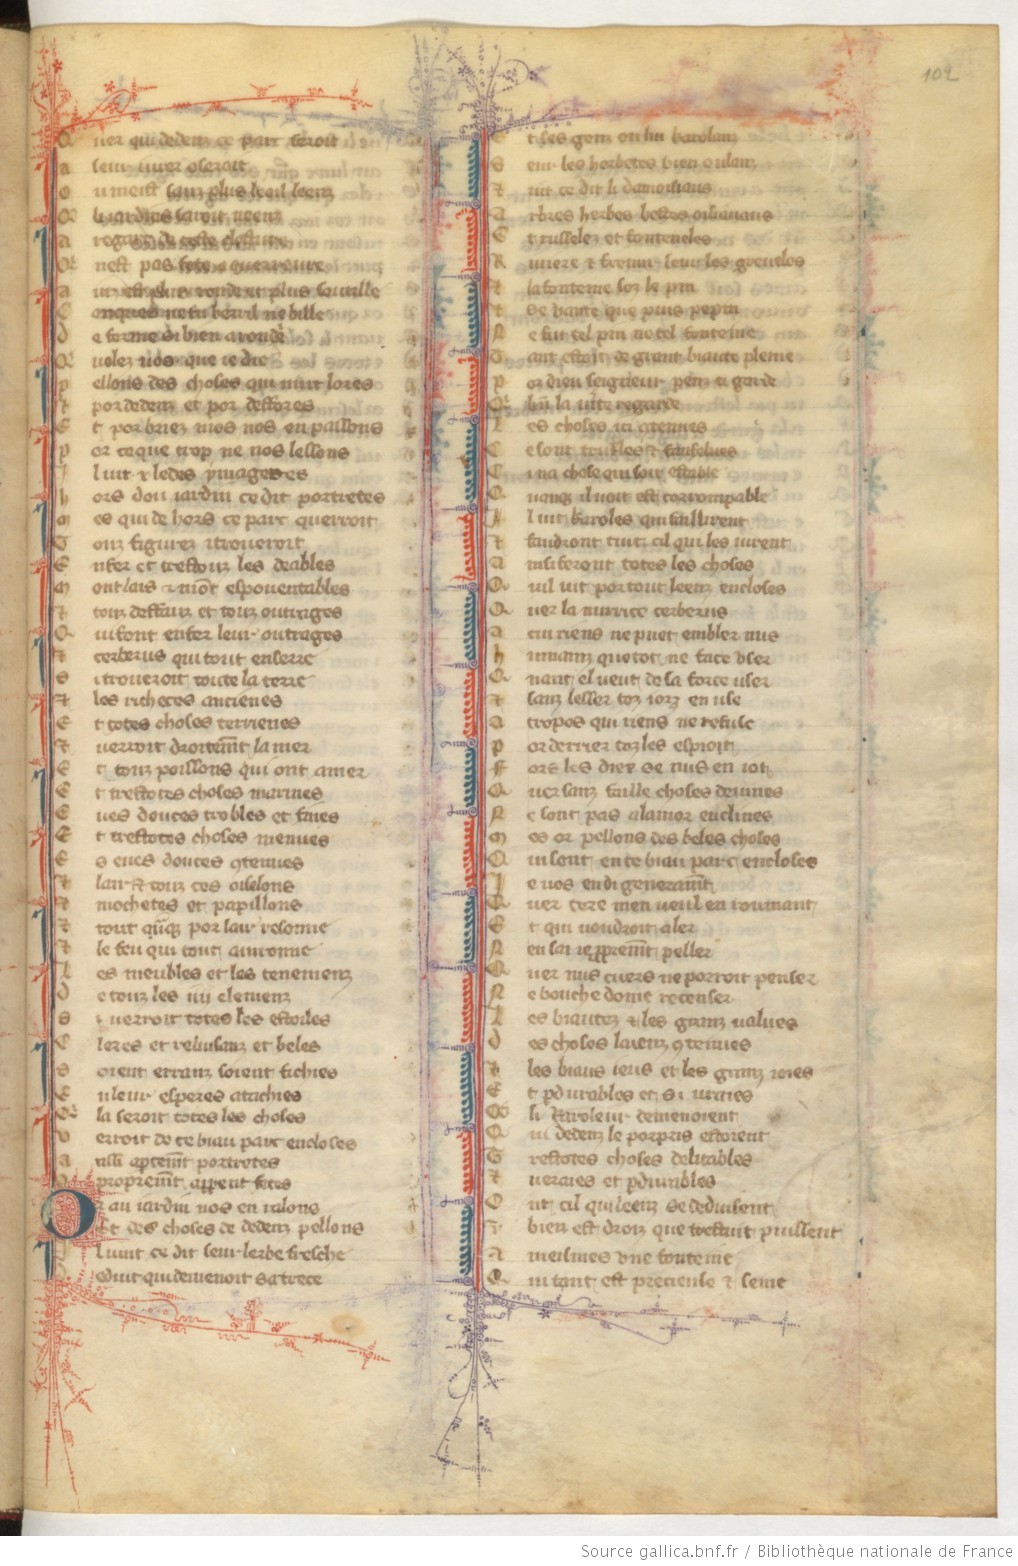 102
Q uer qui dedenz ce parc seroit
a seur iurer oseroit
o u meist sanz plus leeil leenz
Q li iardins seroit neenz
a regart de ceste closture
Q nest pas fete a querreure
a inz est plus ronde et plus soutille
C onques ne fu beril ne bille
d e forme si bien aronde
Q volez uos que ie die
p ellons des choses qui uint lores
& por dedenz et por defores
E t por briez moz nos en passons
p or ce que trop ne nos lessons
l uit x ledes ymagetes
h ors dou iardin ce dit portretes
m es qui de hors ce parc querroit
T ouz figurez i troueroit
E nfer et trestouz les deables
m ont lais & mōt espouentables
& touz deffauz et touz outrages
Q ui font enfer leur outrages
& cerberus qui tout enserre
s i troueroit toute la terre
& les richeces ancienes
E t totes choses terrienes
& uerroit droitemēt la mer
E t touz poissons qui ont amer
E t trestotes choses marines
E ues douces trobles et fines
E t trestotes choses menues
E s eues douces 9tenues
& lair & touz ces oiselons
& mochetes et papillons
& tout q̄nq̄s por lair resonne
& le feu qui tout auironne
L es meubles et les tenemenz
d e touz les iiij elemenz
s i uerroit totes les estoiles
C leres et reluisanz et beles
s oient erranz soient fichies
E n leur esperes atachies
Q la seroit totes les choses
v erroit de ce biau parc encloses
a ussi apertemēt portretes
9 propremēt apperent fetes
O r au iardin nos en ralons
Et des choses de dedenz pellons
l uinit ce dit seur lerbe fresche
deduit qui demenoit sa trece
E t ses genz o u lui karolanz
S eur les herbetes bien oulanz
& uit ce dit li damoisiaus
A rbres herbes bestes oisiauus
E t ruisselez et fonteneles
R uuere & fremir leur les greueles
& la fonteine soz le pin
& se uante que puis pepin
N e fut tel pin ne tel fonteine
T ant estoit de grant biaute pleine
p or dieu seigneur penz ci garde
Q biē la uite regarde
L es choses ici 9tenues
C e sont trufles & fanfelues
C i na chose qui soit estable
Q nanq; il uoit est corrompable
I l uit karoles qui faillirent
& faudront tuit cil qui les uirent
a insi feront totes les choses
Q uil uit por tout leenz encloses
Q uer la nurrice cerberus
a cui riens ne puet embler nus
h umainz que tot ne face vser
Q nant el ueut de sa force user
& sanz lesser toz iorz en use
a tropos qui riens ne refuse
p or derrier toz les espioit
ff ors les diex se nus en iot
Q uer sanz faille choses deuines
N e sont pas alamor enclines
m es or pellons des beles choses
Q ui sont en ce biau parc encloses
I e uos en di generaumt
Q uer ce re men ueul en roumant
E t qui uoudroit aler
N en sai ie propremēt peller
Q uer nus cuers ne porroit penser
N e bouche dome recenser
L es biautez & les granz values
d es choses laienz 9tenues
N les biaus ieus et les granz ioies
E t pdurables et si uraies
Q li karoleur demenoient
Q ui dedenz le porpris estoient
T restotes choses delitables
& ueraies et pdurables
O nt cil qui leenz se deduisent
& bien est droiz que trestuit puissent
A meismes vne fonteine
Q ui tant est precieuse & seine